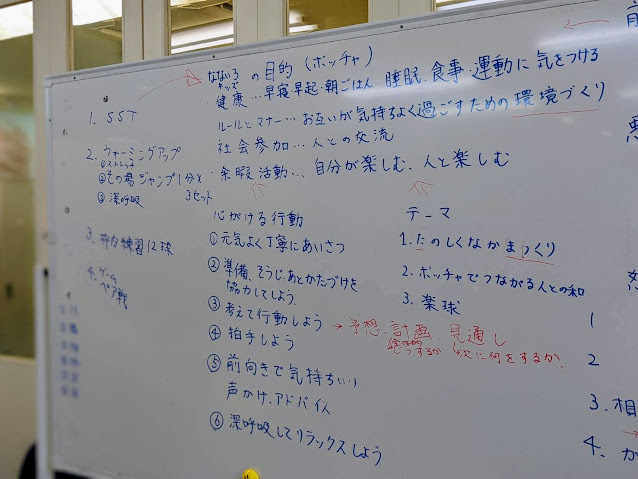 なないろキッズ の目的 (ボッチャ)
・健康…早寝早起・朝ごはん、睡眠、食事・運動に気をつける
ルールとマナー…お互いが気持ちよく過ごすための環境づくり
・社会参加…人との交流
・余暇活動…自分が楽しむ、人と楽しむ
1. SST
2. ウォーミングアップ
①ストレッチ
②その場ジャンプ1分×
3セット
③深呼吸
3. 枠内練習12球
4. ゲーム
ペア戦
心がける行動
①元気よく丁寧にあいさつ
②準備、そうじ、あとかたづけを
協力してしよう
③考えて行動しよう
→予想、計画、見通し
次に何をするか、
④拍手しよう
⑤前向きで気持ちいい
声かけ、アドバイス
⑥深呼吸してリラックスしよう
テーマ
1. たのしくなかまづくり
2. ボッチャでつながる人との和
3. 楽球
1
2
3. 相
4. か